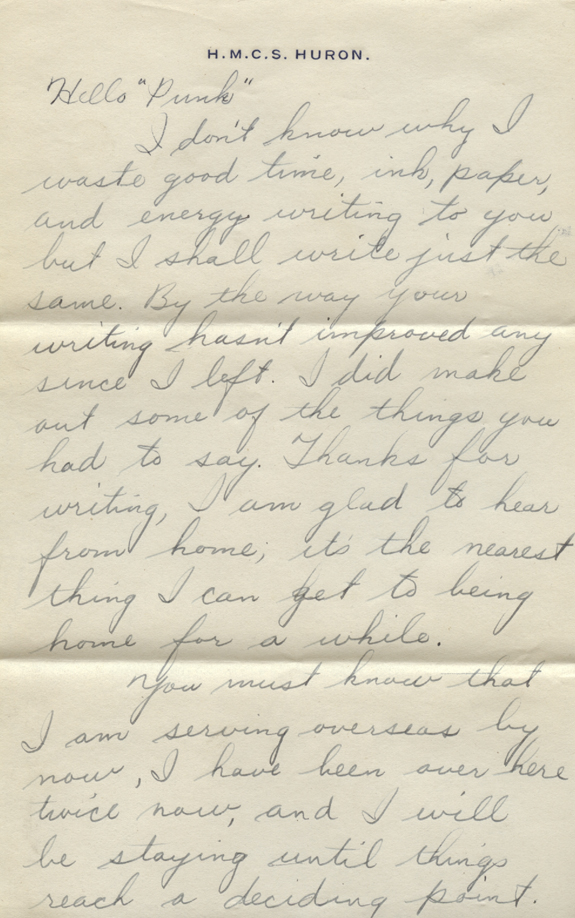 H.M.C.S. HURON.
Hello "Punk"
I don't know why I
waste good time, ink, paper,
and energy writing to you
but I shall write just the
same. By the way your
writing hasn't improved any
since I left. I did make
out some of the things you
had to say. Thanks for
writing, I am glad to hear
from home; it's the nearest
thing I can get to being
home for a while.
You must know that
I am serving overseas by
now, I have been over here
twice now, and I will
be staying until things
reach a deciding point.